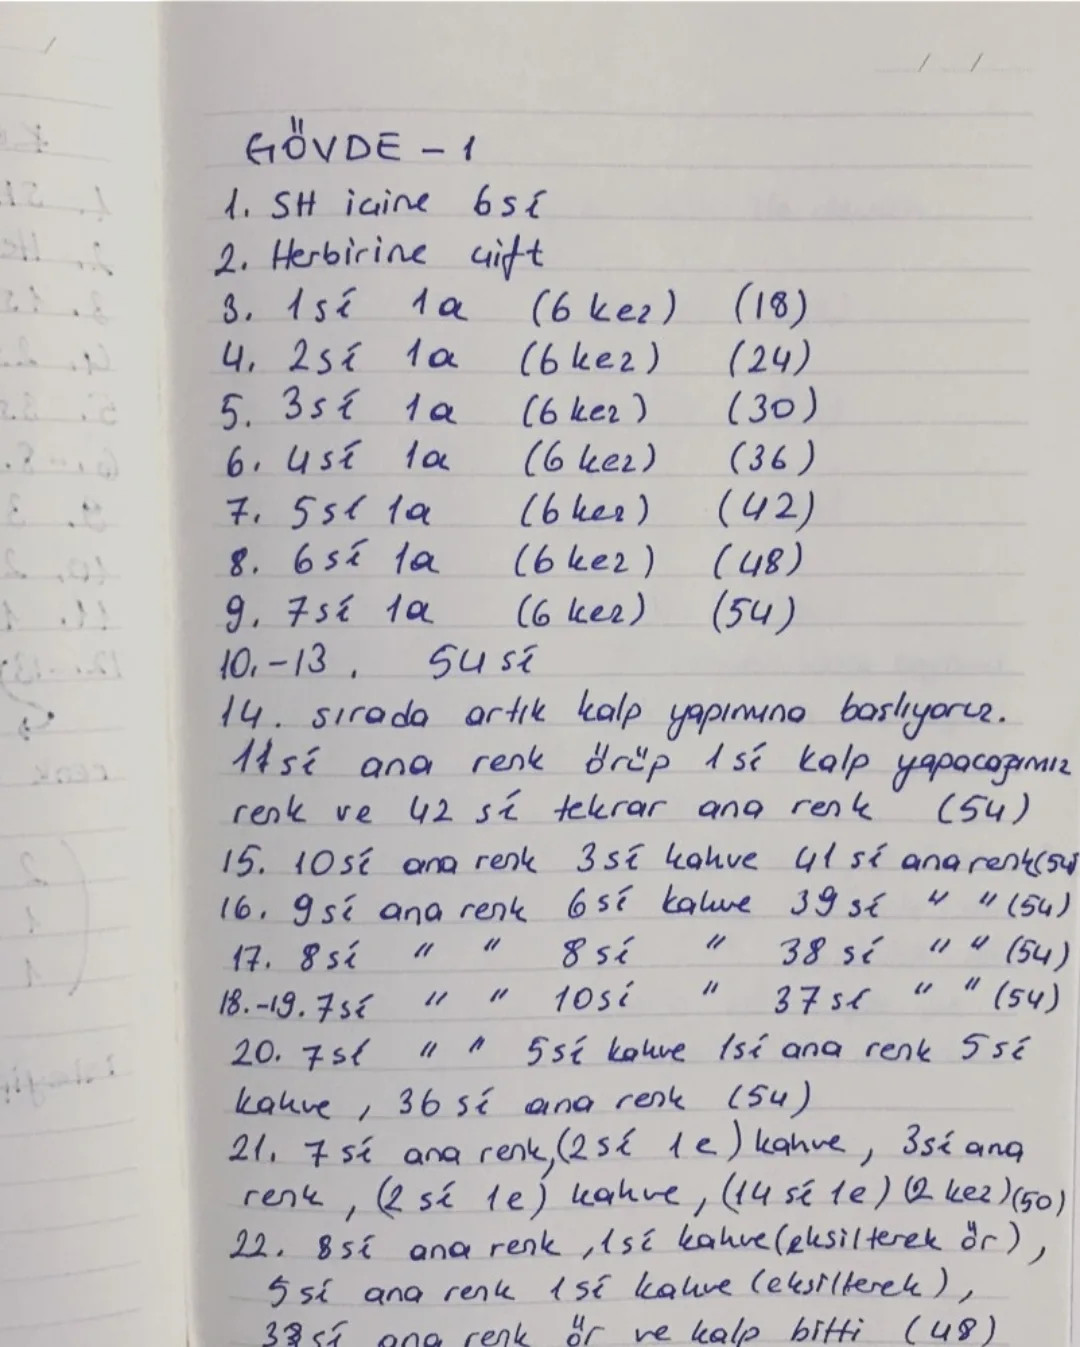 / /
GÖVDE - 1
1. SH içine 6 si
2. Herbirine çift
3. 1 si 1a (6 kez) (18)
4. 2si 1a (6 kez) (24)
5. 3si 1a (6 kez) (30)
6. 4si 1a (6 kez) (36)
7. 5si 1a (6 kez) (42)
8. 6si 1a (6 kez) (48)
9. 7si 1a (6 kez) (54)
10.-13. 54 si
14. sırada artık kalp yapımına başlıyoruz.
11si ana renk örüp 1 si kalp yapacağımız
renk ve 42 si tekrar ana renk (54)
15. 10si ana renk 3si kahve 41 si ana renk(54)
16. 9si ana renk 6si kahve 39si " " (54)
17. 8si " " 8si " 38 si " " (54)
18.-19. 7si " " 10si " 37si " " (54)
20. 7si " " 5si kahve 1si ana renk 5si
kahve, 36 si ana renk (54)
21. 7 si ana renk,(2si 1e) kahve, 3si ana
renk, (2 si 1e) kahve, (14 si 1e) (2 kez)(50)
22. 8si ana renk, 1si kahve(eksilterek ör),
5si ana renk 1si kahve (eksilterek),
si ana renk ör ve kalp bitti (48)